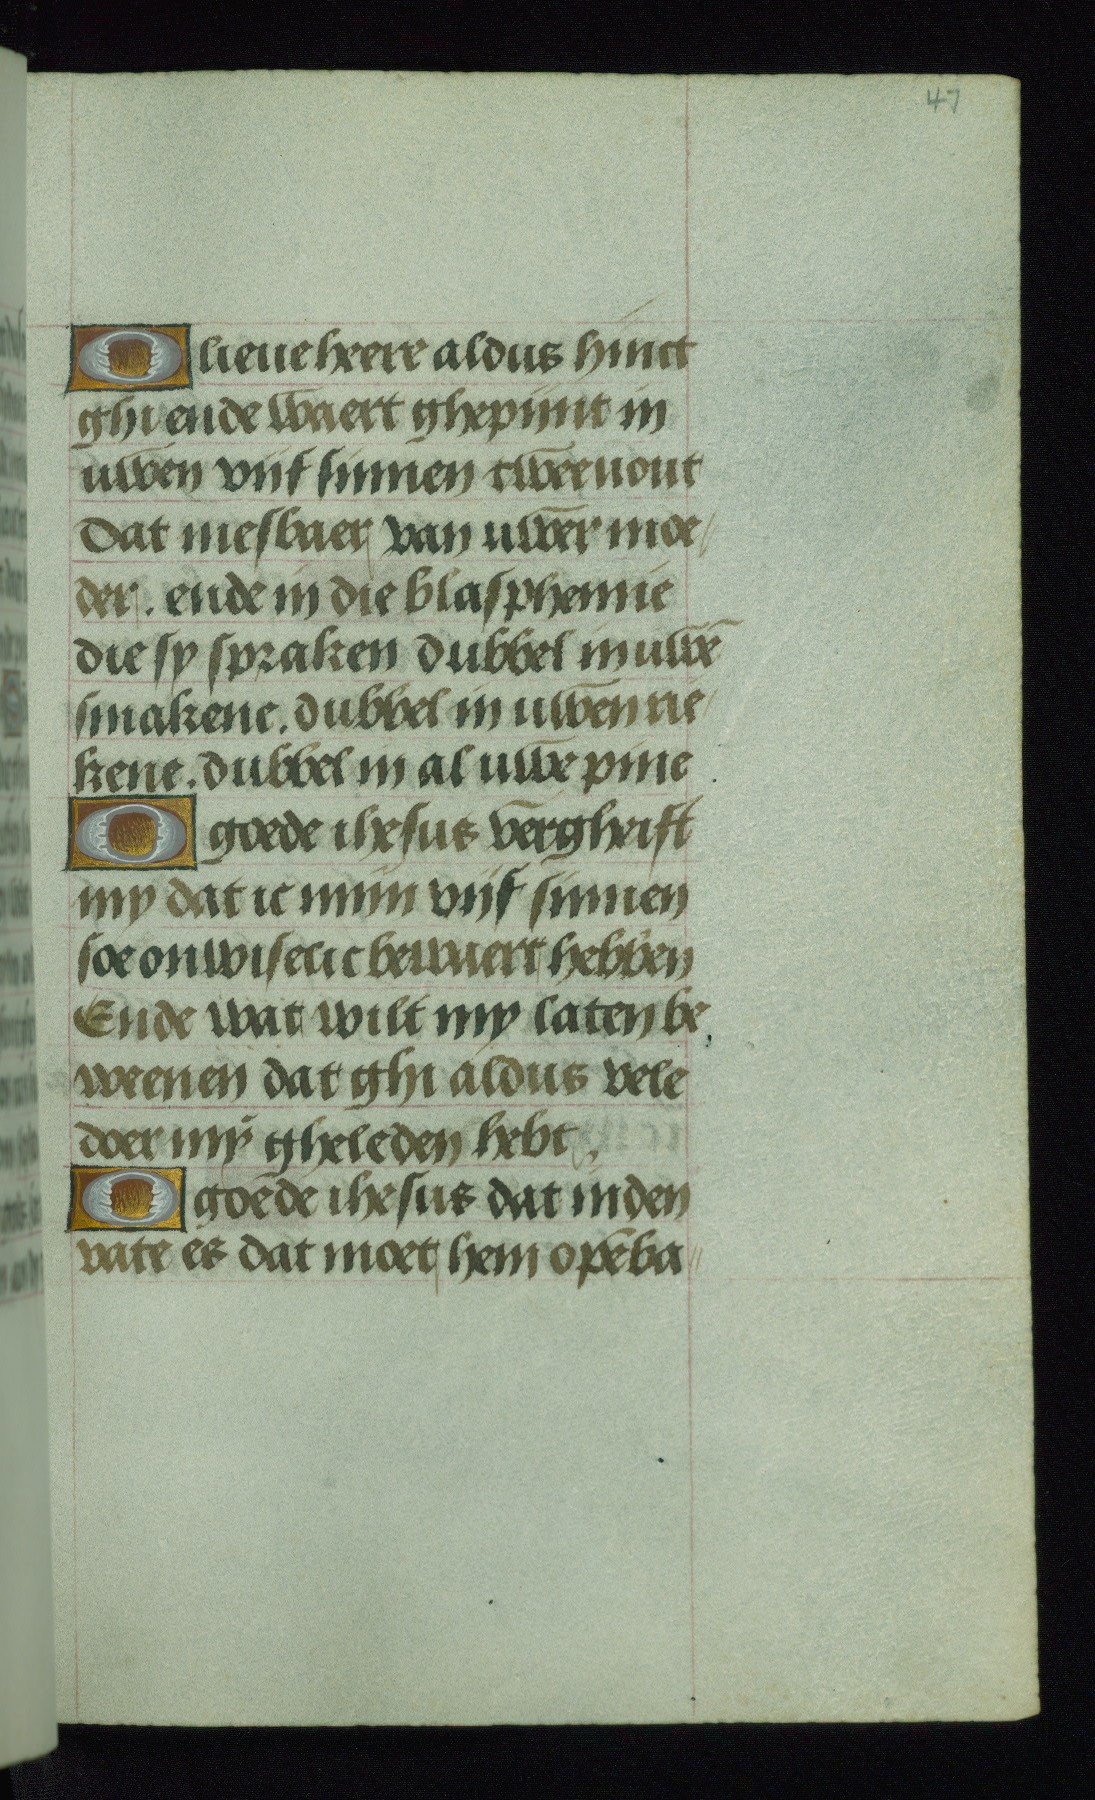 47
O lieue heere aldus hinct
ghi ende waert ghepijnt in
uwen vijf sinnen tweeuout
Dat mesbaer van uwer moe/
der. ende in die blasphemie
die sy spraken dubbel in uwē
smakene. dubbel in uwen rie/
kene. dubbel in al uwe pine
O goede ihesus vergheift
my dat ic mijn vijf sinnen
soe onwiselic bewaert hebben
Ende wat wilt my laten be
weenen dat ghi aldus vele
doer my gheleden hebt.
O goede ihesus dat inden
vate es dat moet hem opēba//